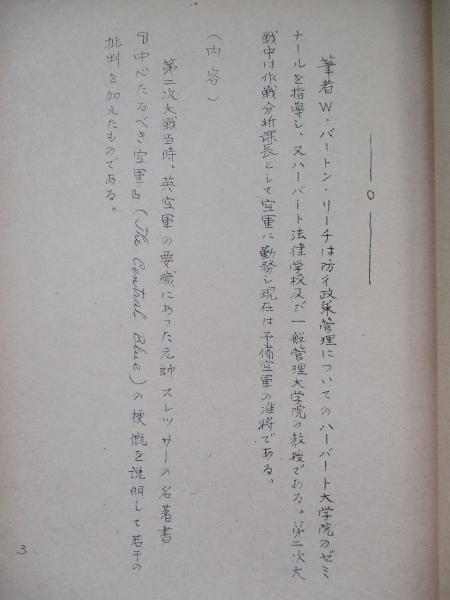 筆者W・バートン・リーチは防衛政策管理についてのハーバート大学院のゼミ
ナールを指導し、又ハーバート法律学校及び一般管理大学院の教授である。第二次大
戦中は作戦分析課長として空軍に勤務し現在は予備空軍の准将である。
(内容)
第二次大戦当時、英空軍の要職にあつた元帥スレッサーの名著書
『中心たるべき空軍』(The Central Blue)の梗慨を説明して若干の
批判を加えたものである。
3